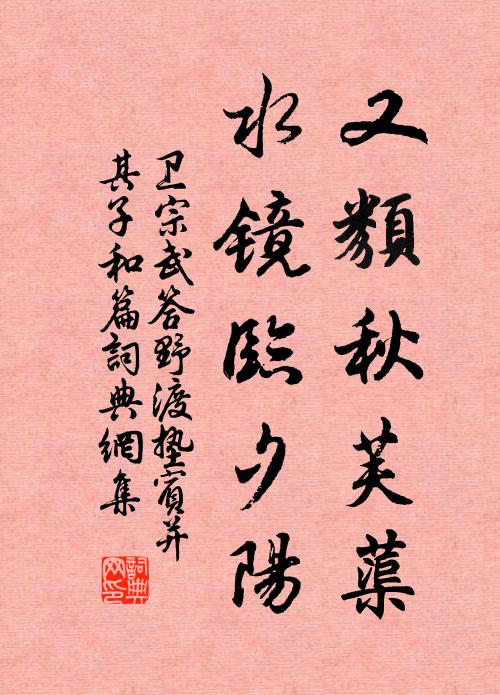 又類秋芙蕖
水镜臨夕陽
卫宗武答野渡垫賓并
其子和篇詞典網集
詞典网印